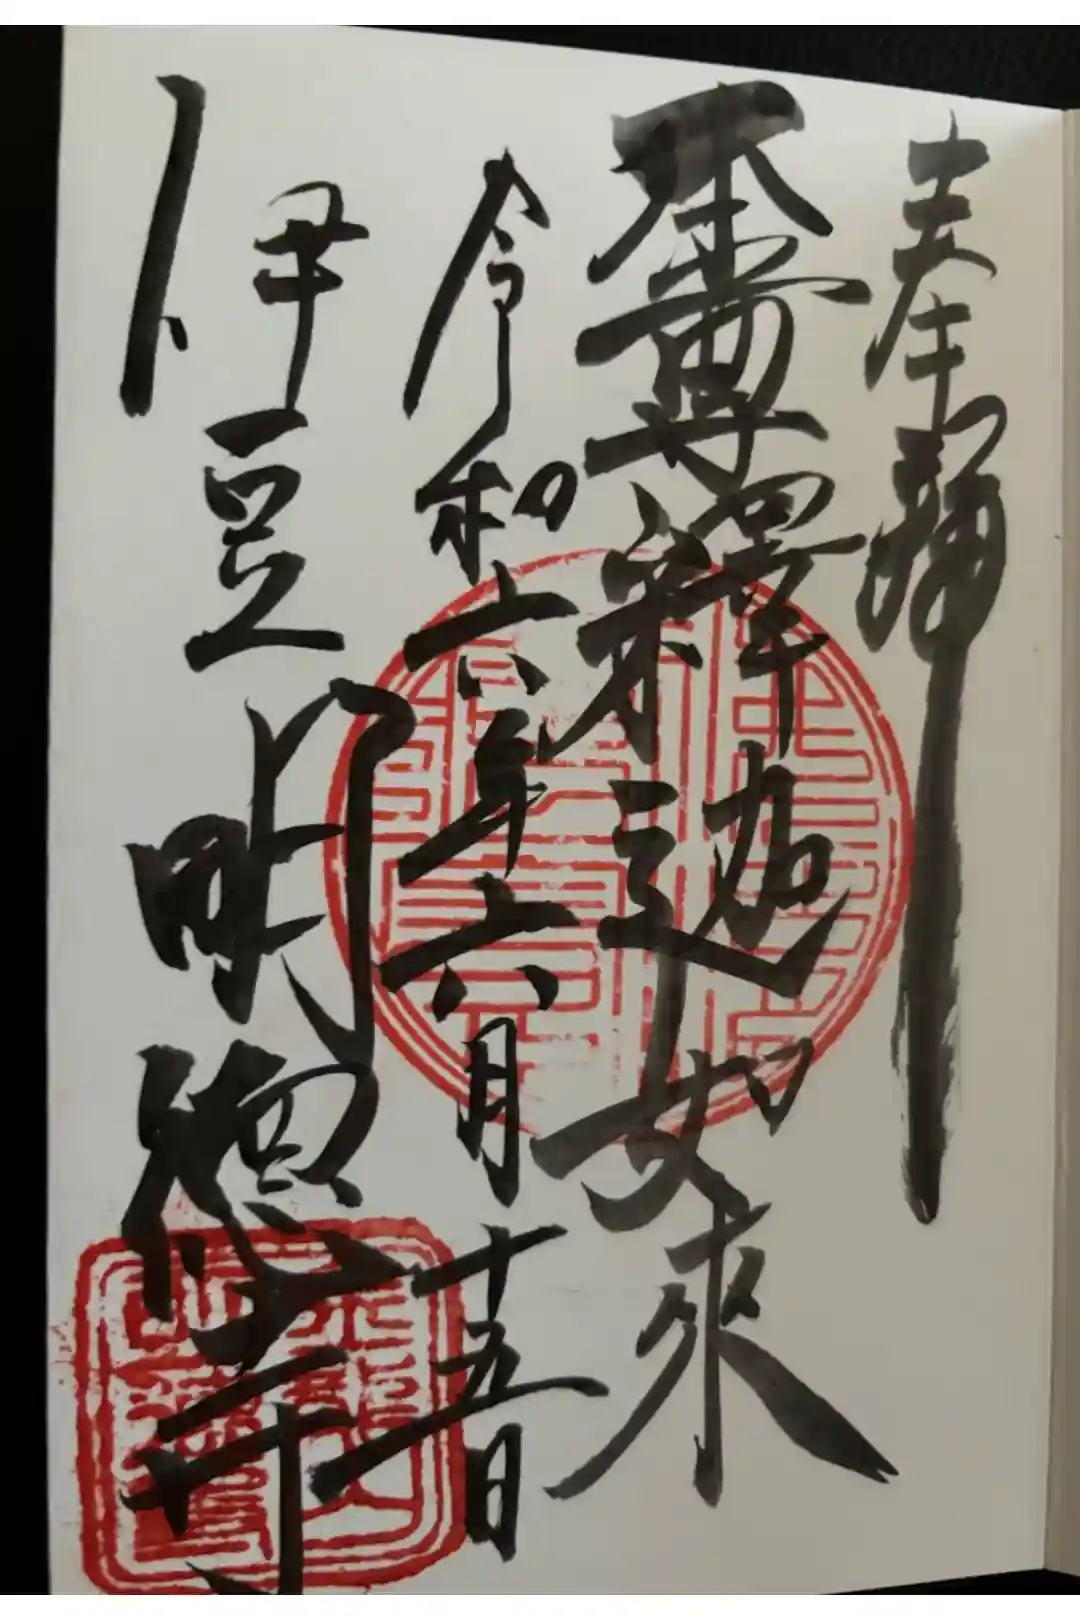 奉拝
本尊釋迦如來
令和六年六月十五日
伊豆明徳寺